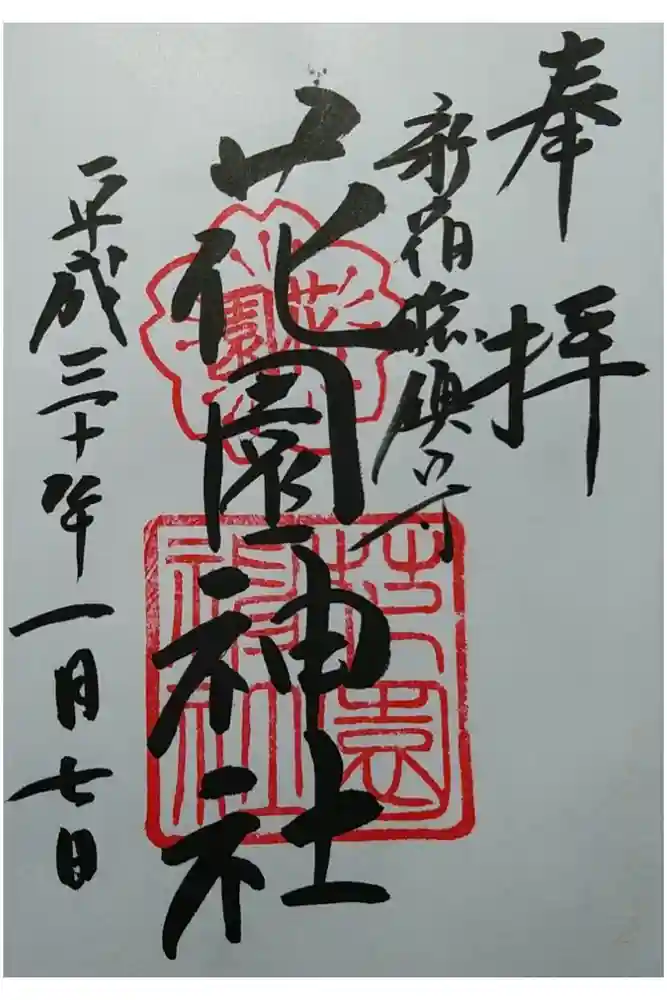 奉拝
新宿総鎮守
花園神社
花園
花園神社
平成三十年一月七日